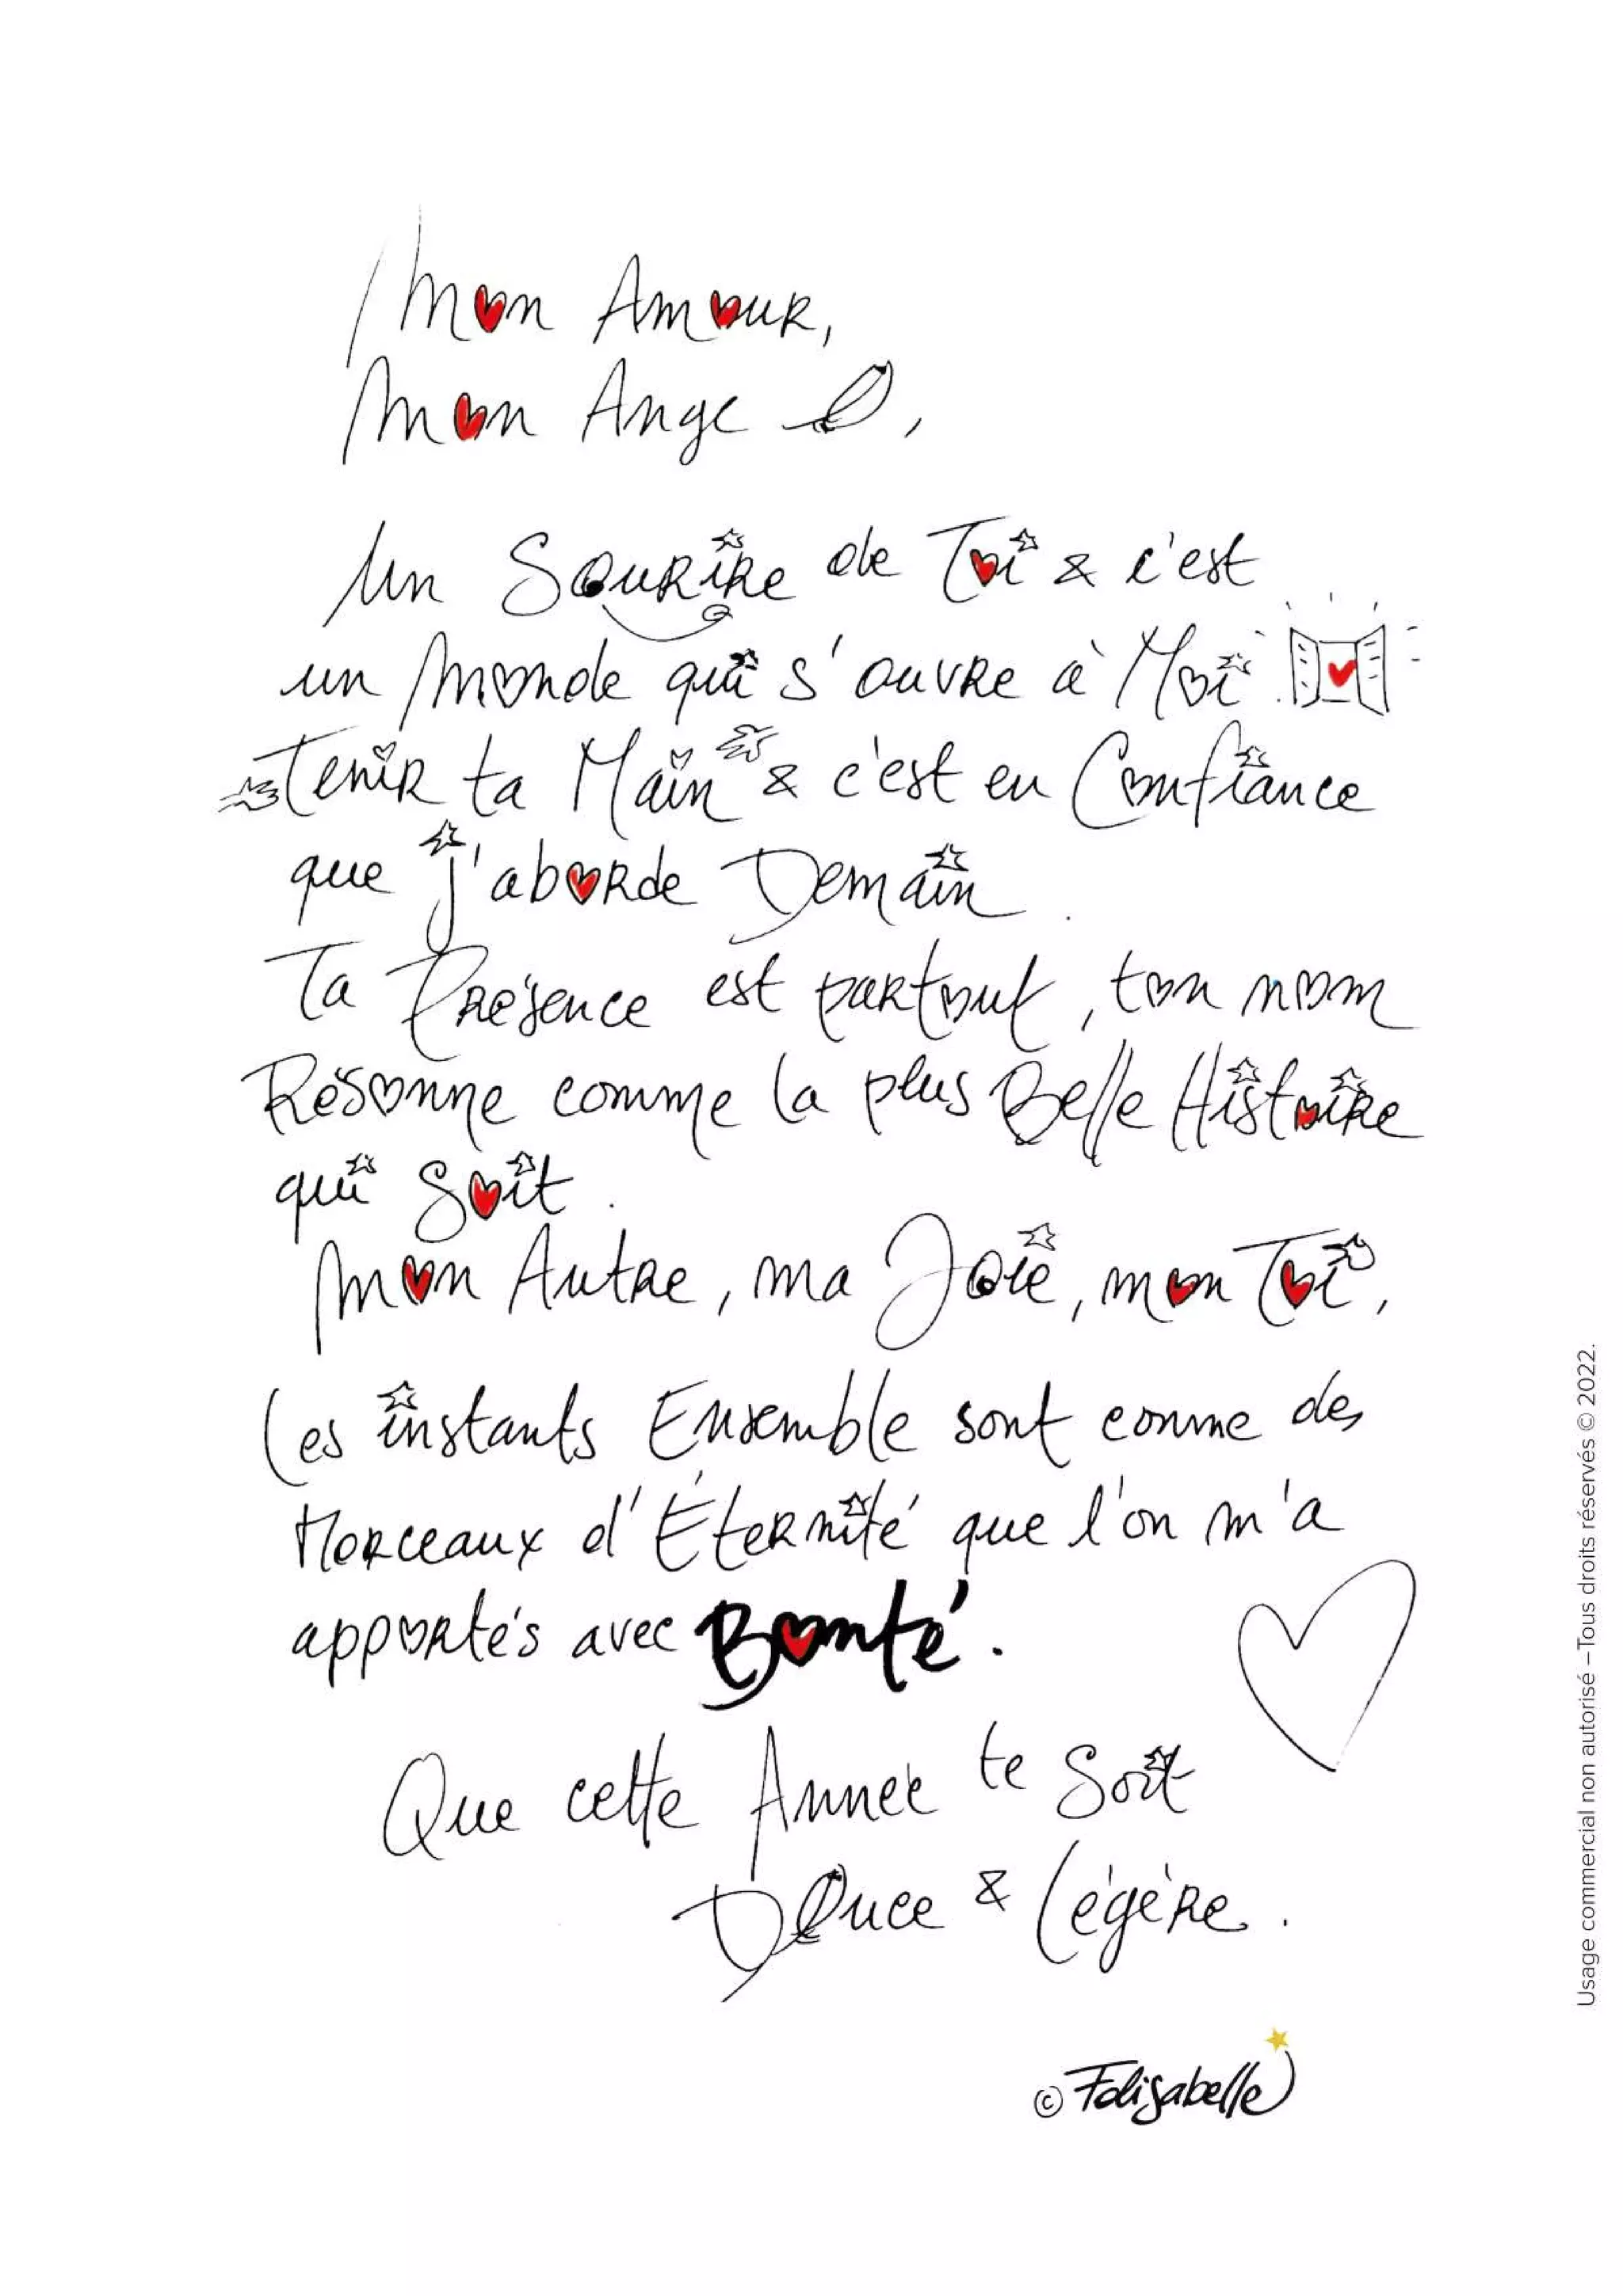 Mon Amour,
Mon Ange,
Un Sourire de Toi & c'est
un Monde qui s'ouvre à Moi
Tenir ta Main & c'est en Confiance
que j'aborde Demain.
Ta Présence est partout, ton nom
Résonne comme la plus Belle Histoire
qui Soit.
Mon Autre, ma Joie, mon Toi,
Les instants Ensemble sont comme des
Morceaux d'Éternité que l'on m'a
apportés avec Bonté.
Que cette Année te Soit
Douce & Légère.
© Folisabelle
Usage commercial non autorisé – Tous droits réservés © 2022.